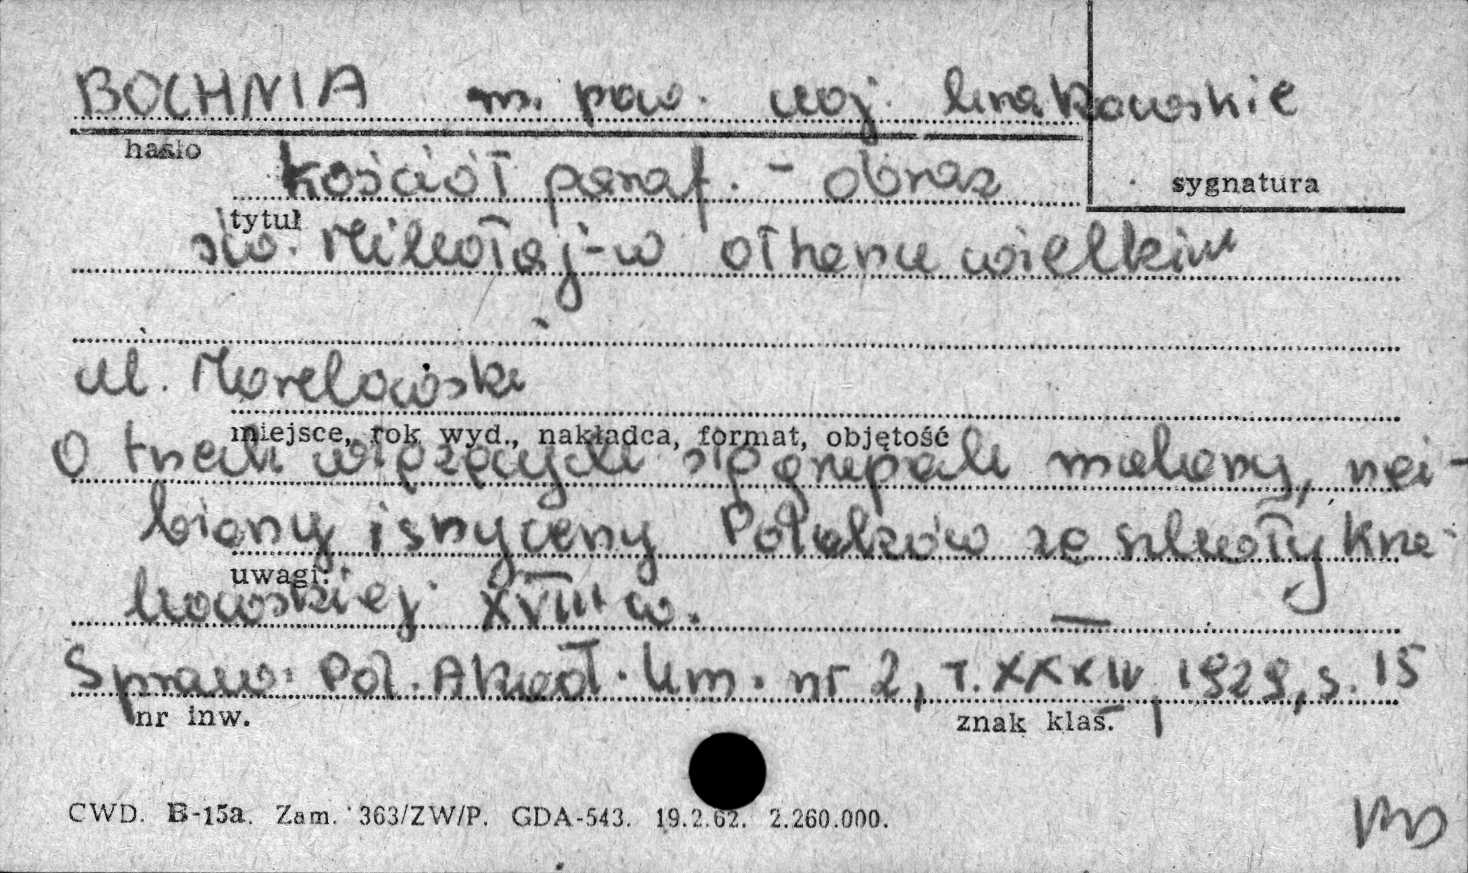 BOCHNIA m. pow. woj. krakowskie
hasło
kościół paraf. - obraz
sygnatura
tytuł
św. Mikołaj - w ołtarzu wielkim
M. Morelowski
miejsce, rok wyd., nakładca, format, objętość
O trzech wiążących się grupach malarzy, rzeź-
biarzy i snycerzy Polaków ze szkoły kra-
uwagi:
kowskiej XVIII w. —
Spraw. Pol. Akad. Um. nr 2, T. XXXIV, 1929, s. 15
nr inw.
znak klas.
CWD. B-15a. Zam. 363/ZW/P. GDA-543. 19.2.62. 2.260.000.